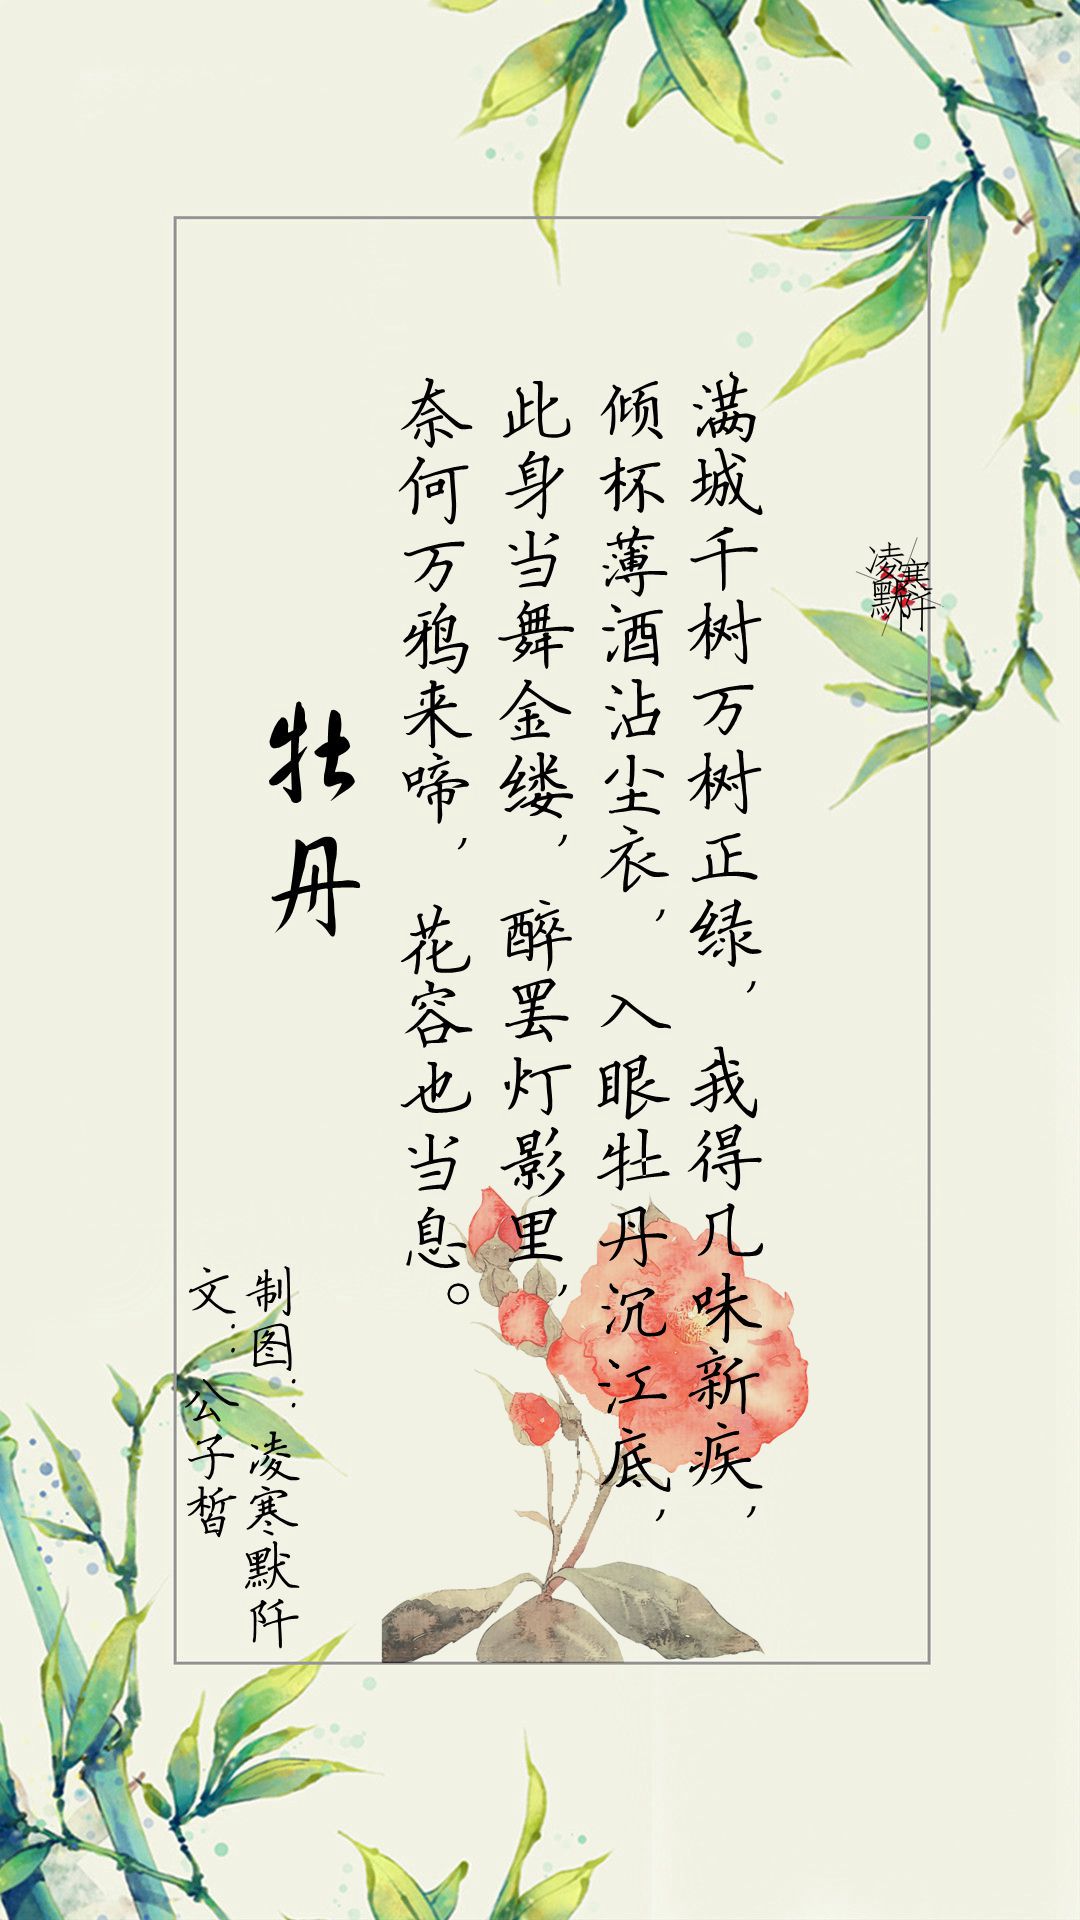 满城千树万树正绿，我得几味新疾，
倾杯薄酒沾尘衣，入眼牡丹沉江底，
此身当舞金缕，醉罢灯影里，
奈何万鸦来啼，花容也当息。
牡丹
制图：凌寒默阡
文：公子皙
凌寒
默阡